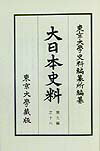 東京大學史料編纂所編纂
大日本史料
第九編
之十八
東京大學藏版